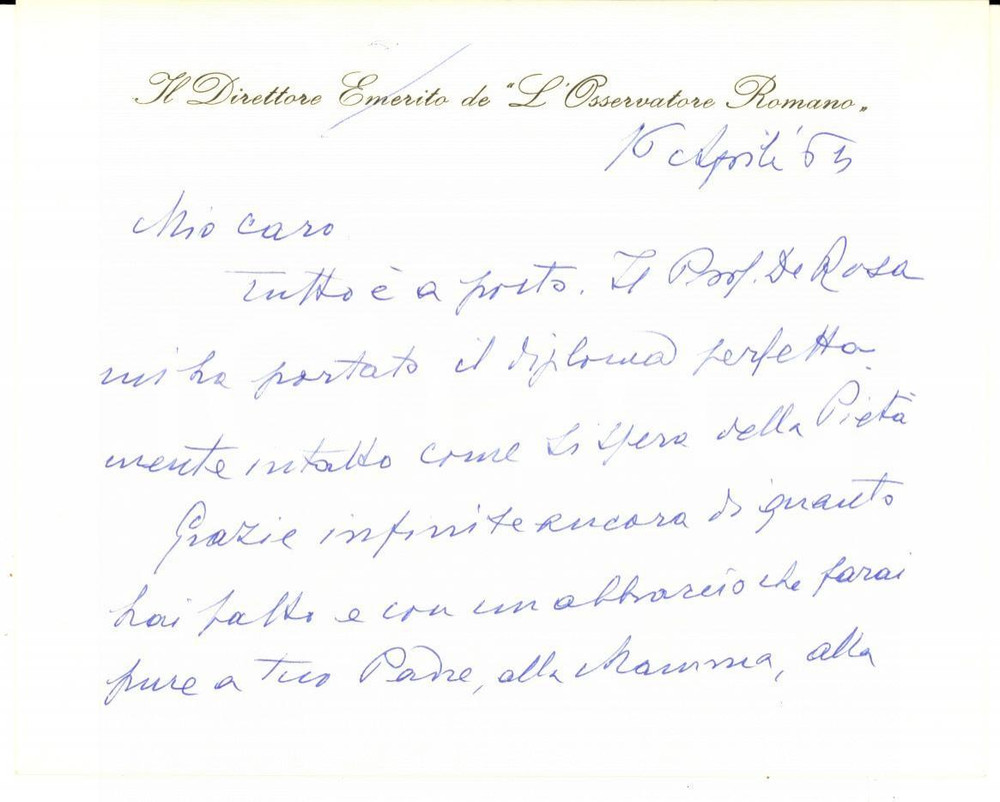 Il Direttore Emerito de "L'Osservatore Romano„
16 Aprile '65
Mio caro
Tutto è a posto. Il Prof. De Rosa
mi ha portato il diploma perfetta-
mente intatto come si spera della Pietà
Grazie infinite ancora di quanto
hai fatto e con un abbraccio che farai
pure a tuo Padre, alla Mamma, alla